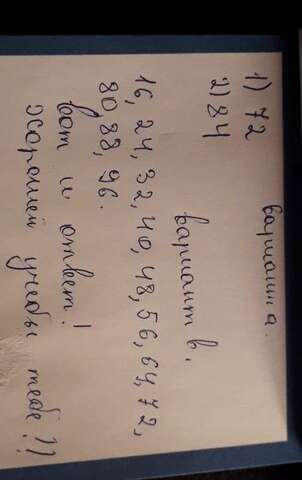 вариант а.
1) 72
2) 84
вариант в.
16, 24, 32, 40, 48, 56, 64, 72,
80, 88, 96.
вот и ответ!
хорошей учебы тебе!))